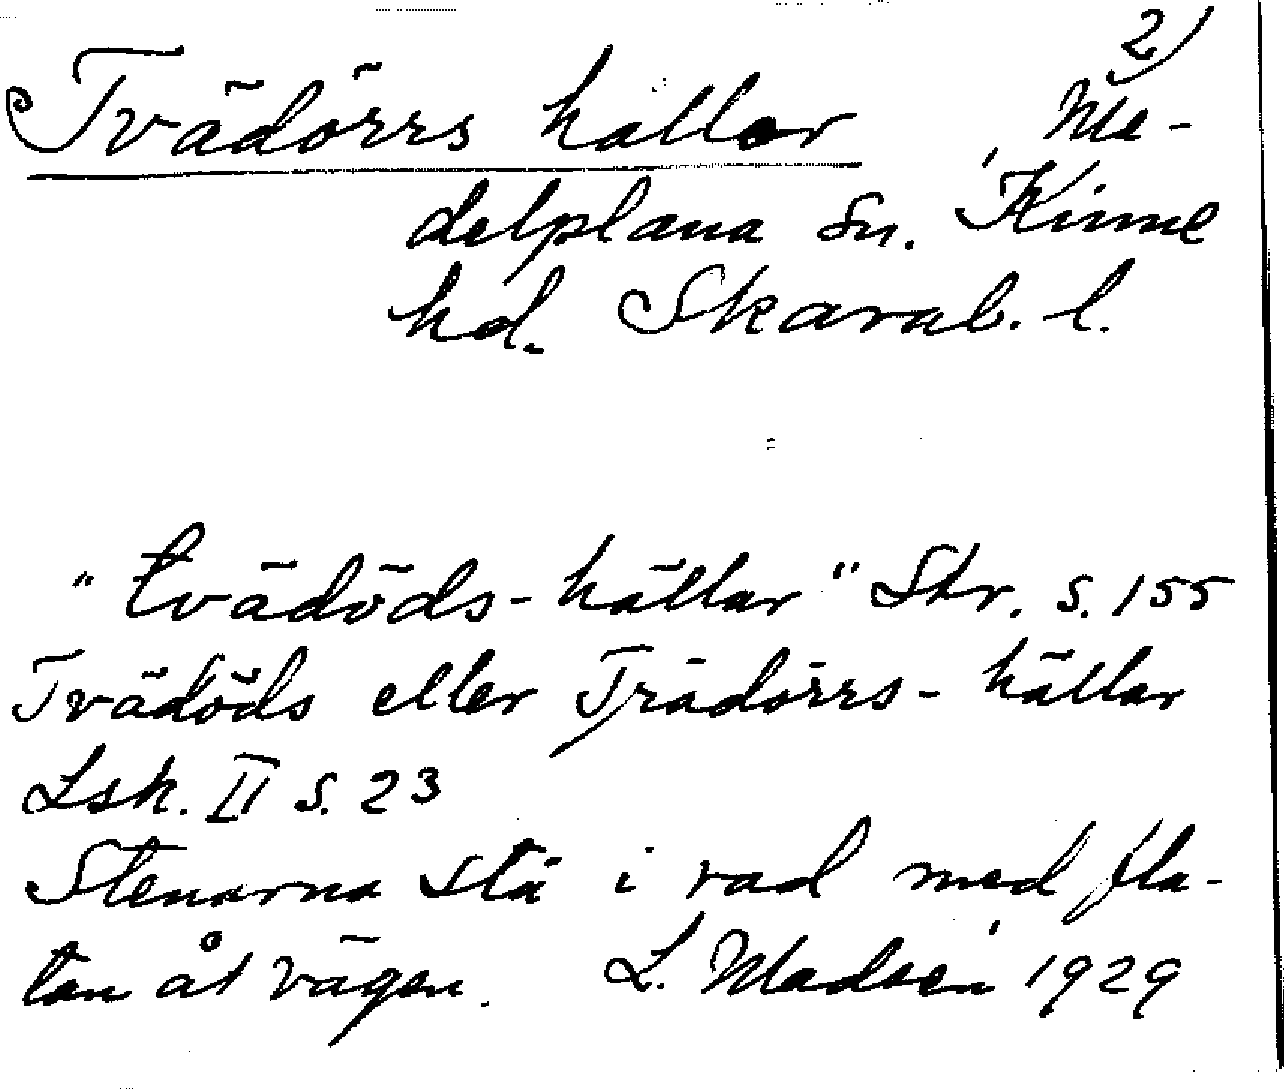 2)
Tvädörrs hallar, Me-
delplana sn. Kinne
hd. Skarab. l.
"tvädöds-hällar" Skr. s. 155
Tvädöds eller Trädörrs-hällar
Lsk. II s. 23
Stenarna stå i rad med fla-
tan åt vägen. L. Madsén 1929